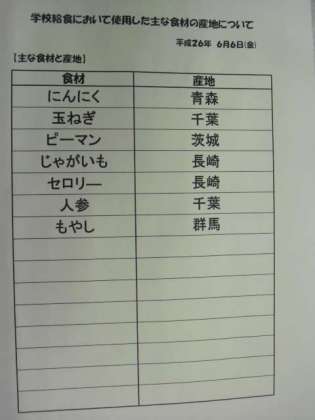 学校給食において使用した主な食材の産地について
平成26年 6月6日(金)
【主な食材と産地】
食材 産地
にんにく 青森
玉ねぎ 千葉
ピーマン 茨城
じゃがいも 長崎
セロリー 長崎
人参 千葉
もやし 群馬